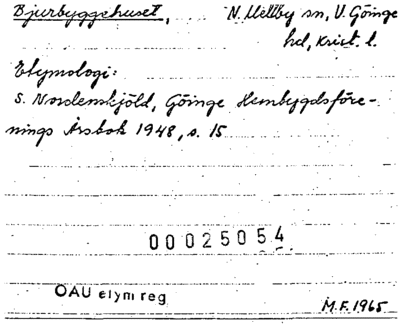 Bjurbyggehuset, N. Mellby sn, V. Göinge
hd, Krist. l.
Etymologi:
S. Nordenskjöld, Göinge Hembygdsföre-
nings Årsbok 1948, s. 15
00025054
OAU etym reg
M.F. 1965